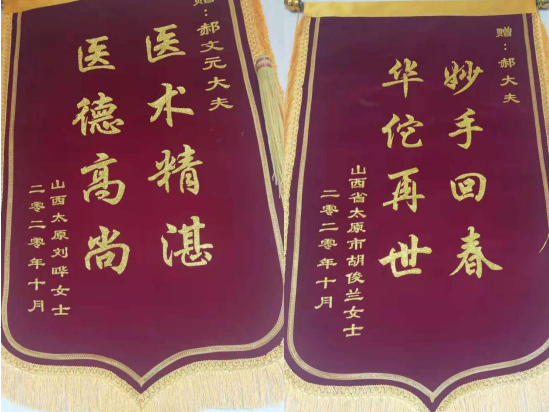 赠:郝文元大夫
医术精湛
医德高尚
山西太原刘晔女士
二零二零年十月
赠:郝大夫
妙手回春
华佗再世
山西省太原市胡俊兰女士
二零二零年十月